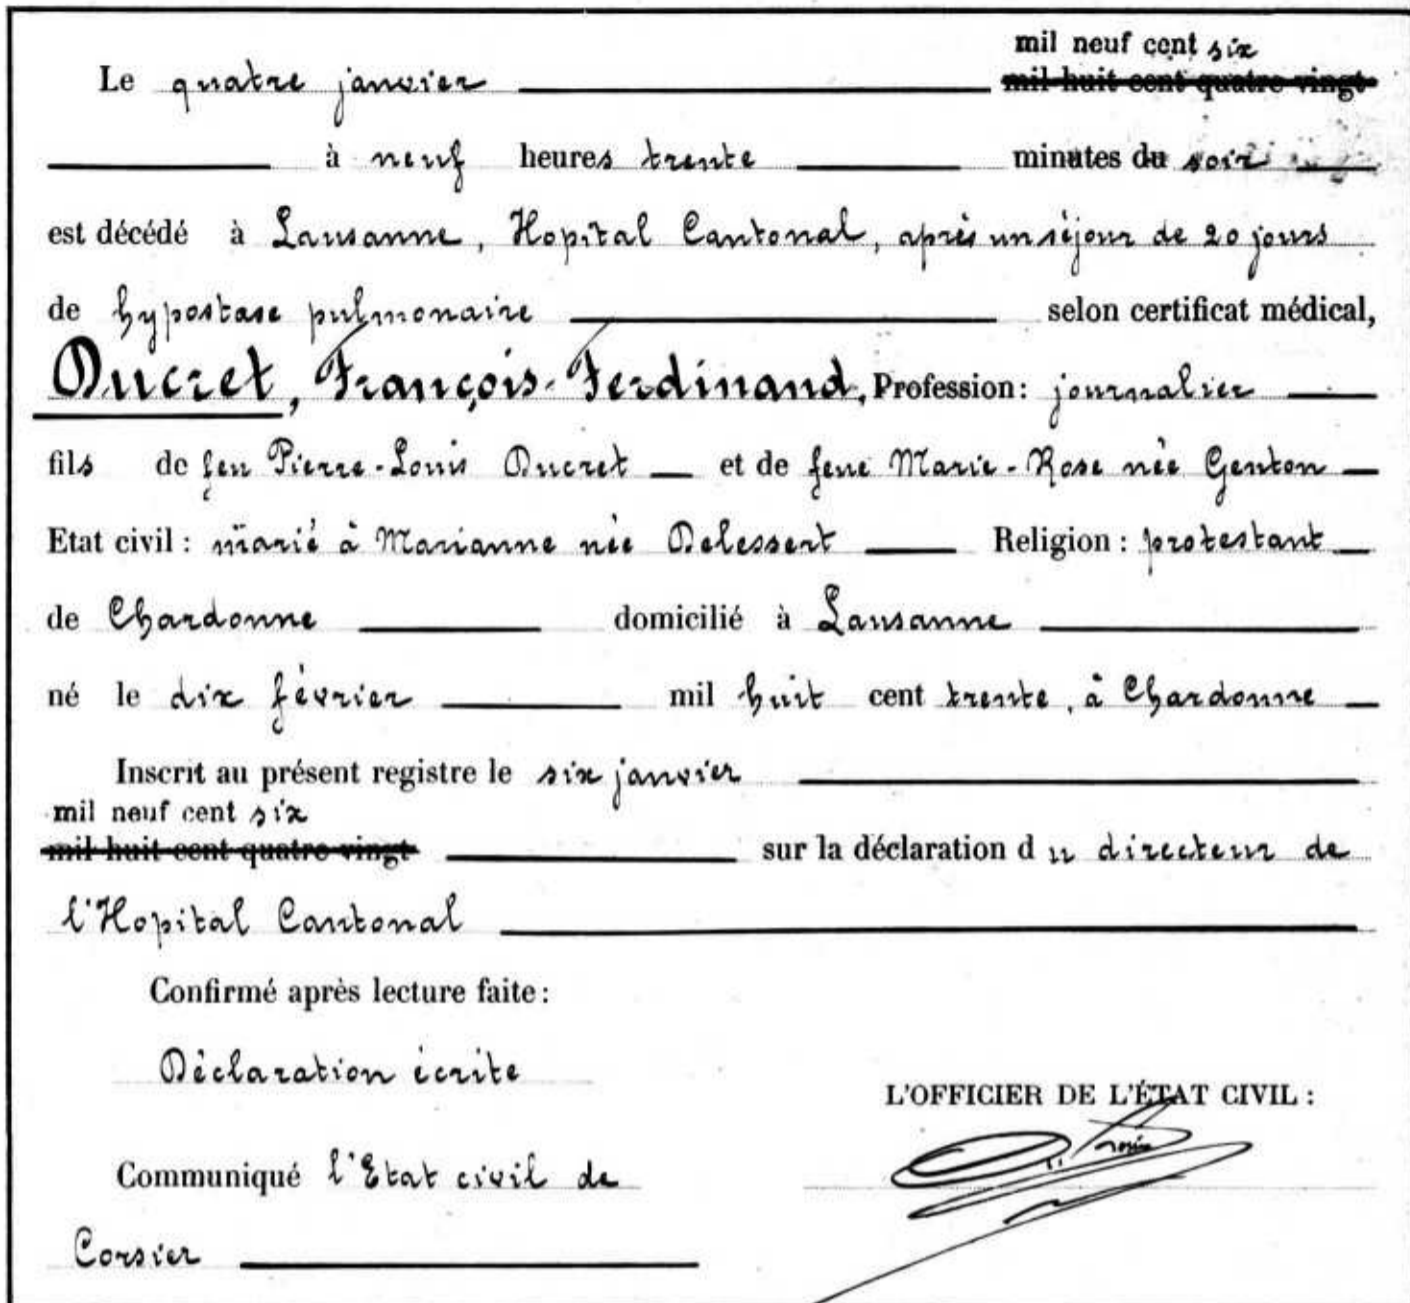 mil neuf cent six
Le quatre janvier mil huit cent quatre-vingt
à neuf heures trente minutes du soir
est décédé à Lausanne, Hopital Cantonal, après un séjour de 20 jours
de hypostase pulmonaire selon certificat médical,
Ducret, François-Ferdinand, Profession: journalier
fils de feu Pierre-Louis Ducret et de feue Marie-Rose née Genton
Etat civil : marié à Marianne née Delessert Religion : protestant
de Chardonne domicilié à Lausanne
né le dix février mil huit cent trente, à Chardonne
Inscrit au présent registre le six janvier
mil neuf cent six
mil huit cent quatre-vingt sur la déclaration du directeur de
l'Hopital Cantonal
Confirmé après lecture faite :
Déclaration écrite
L'OFFICIER DE L'ÉTAT CIVIL :
Communiqué l'Etat civil de
Corsier